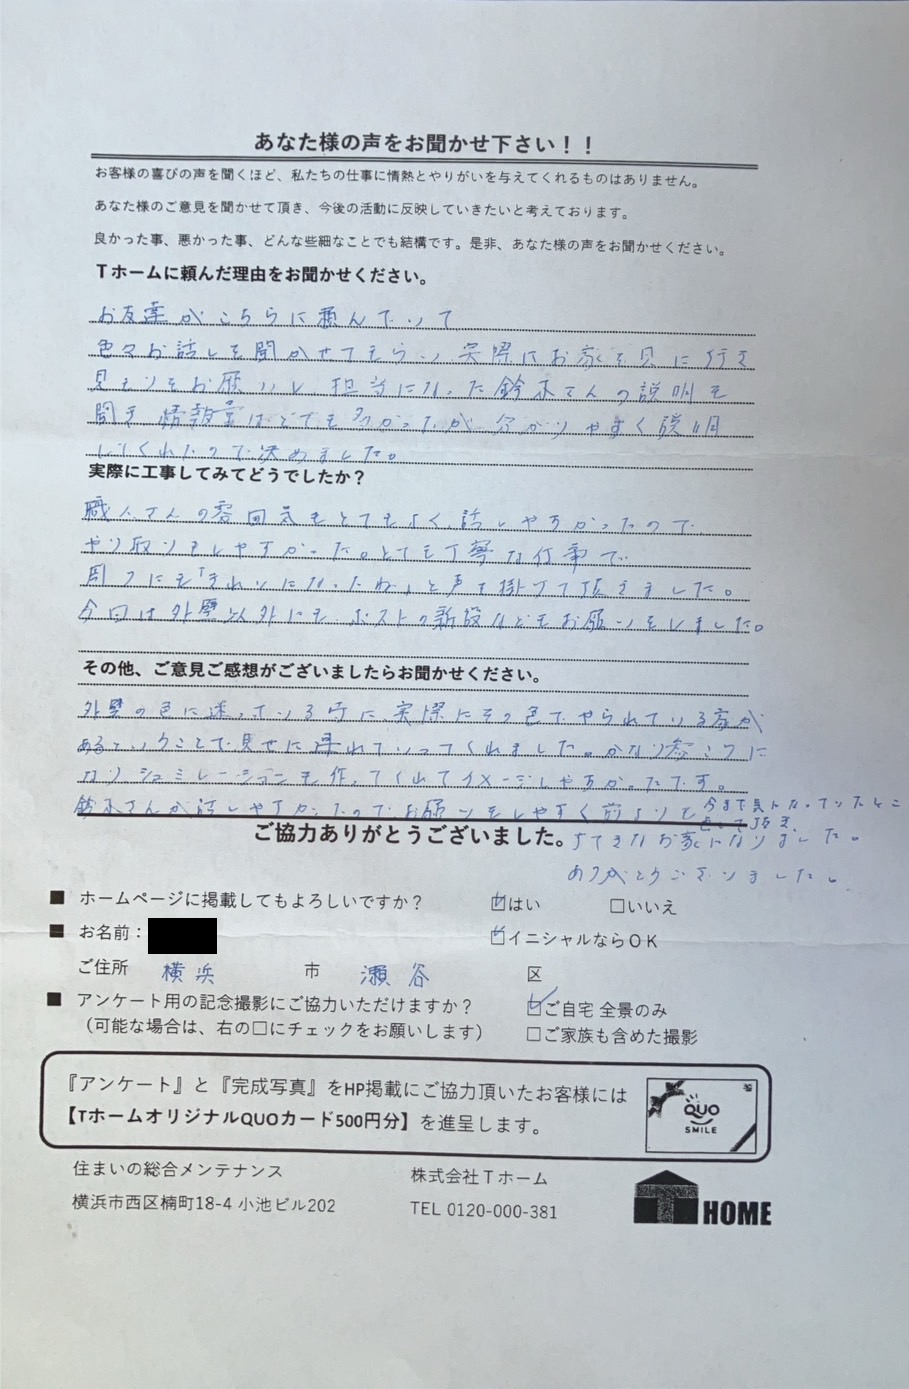 あなた様の声をお聞かせ下さい！！
お客様の喜びの声を聞くほど、私たちの仕事に情熱とやりがいを与えてくれるものはありません。
あなた様のご意見を聞かせて頂き、今後の活動に反映していきたいと考えております。
良かった事、悪かった事、どんな些細なことでも結構です。是非、あなた様の声をお聞かせください。
Tホームに頼んだ理由をお聞かせください。
お友達がこちらに頼んでいて
色々お話しを聞かせてもらい 実際にお家を見に行き
見もりをお願いし、担当になった鈴木さんの説明を
聞き 情報量はとても多かったが 分かりやすく説明
してくれたので決めました。
実際に工事してみてどうでしたか？
職人さんの雰囲気もとてもよく、話しやすかったので
やり取りもしやすかった。とても丁寧な仕事で
周りにも「きれいになったね」と声を掛けて頂きました。
今回は外壁以外にも ポストの新設などもお願いをしました。
その他、ご意見ご感想がございましたらお聞かせください。
外壁の色に迷っている時に、実際にその色でやられている方が
あるということで見せに連れていってくれました。かなり参こうに
なり シュミレーションも作ってくれてイメージしやすかったです。
鈴木さんが話しやすかったのでお願いをしやすく前よりも 今まで気になっていたとこ
も 頂き、
ご協力ありがとうございました。
すてきなお家になりました。
ありがとうございました。
■ ホームページに掲載してもよろしいですか？ ☑はい □いいえ
■ お名前： ☑イニシャルならOK
ご住所 横浜 市 瀬谷 区
■ アンケート用の記念撮影にご協力いただけますか？ ☑ご自宅 全景のみ
（可能な場合は、右の□にチェックをお願いします） □ご家族も含めた撮影
『アンケート』と『完成写真』をHP掲載にご協力頂いたお客様には
【TホームオリジナルQUOカード500円分】を進呈します。
QUO
SMILE
住まいの総合メンテナンス 株式会社Tホーム
横浜市西区楠町18-4 小池ビル202 TEL 0120-000-381
T HOME